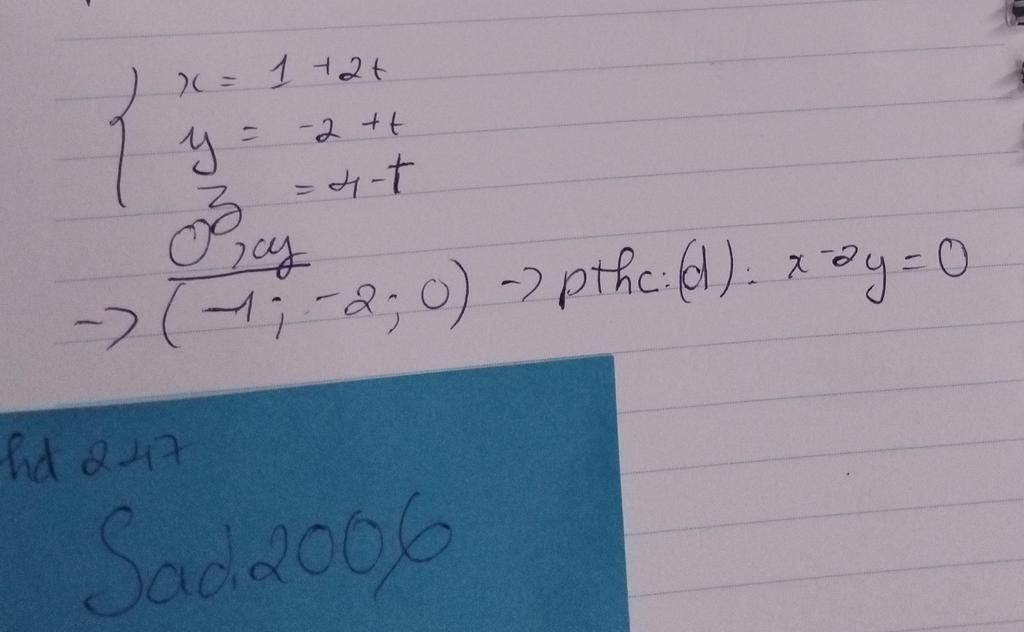 { x = 1 + 2t
y = -2 + t
z = 4 - t
Oxy
-> (-1; -2; 0) -> pthc: (d): x - 2y = 0
hd 247
Sad.2006